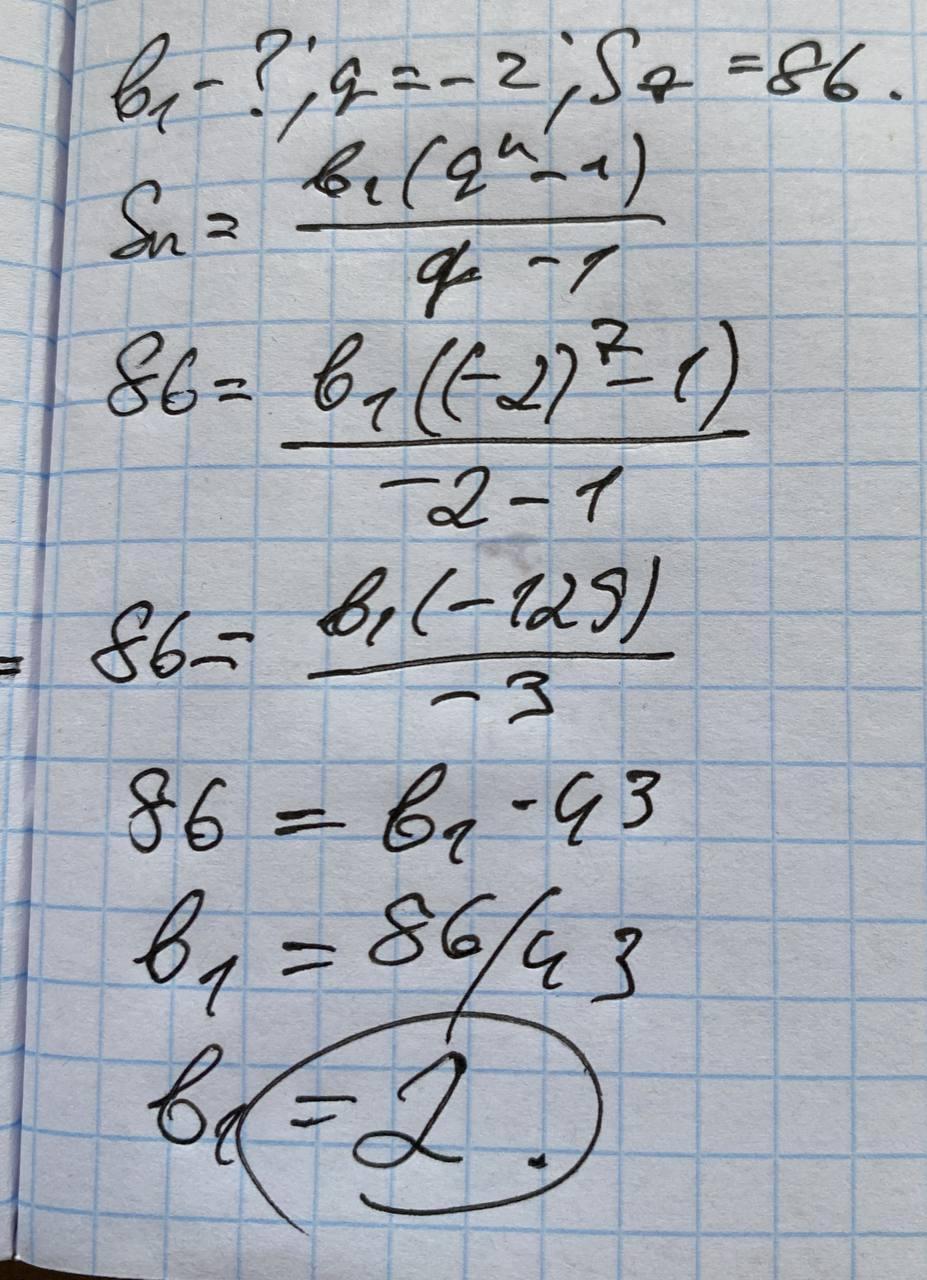 b₁ - ?; q = -2; S₇ = 86.
Sn = b₁(qⁿ - 1) / q - 1
86 = b₁((-2)⁷ - 1) / -2 - 1
= 86 = b₁(-129) / -3
86 = b₁ · 43
b₁ = 86/43
b₁ = 2.